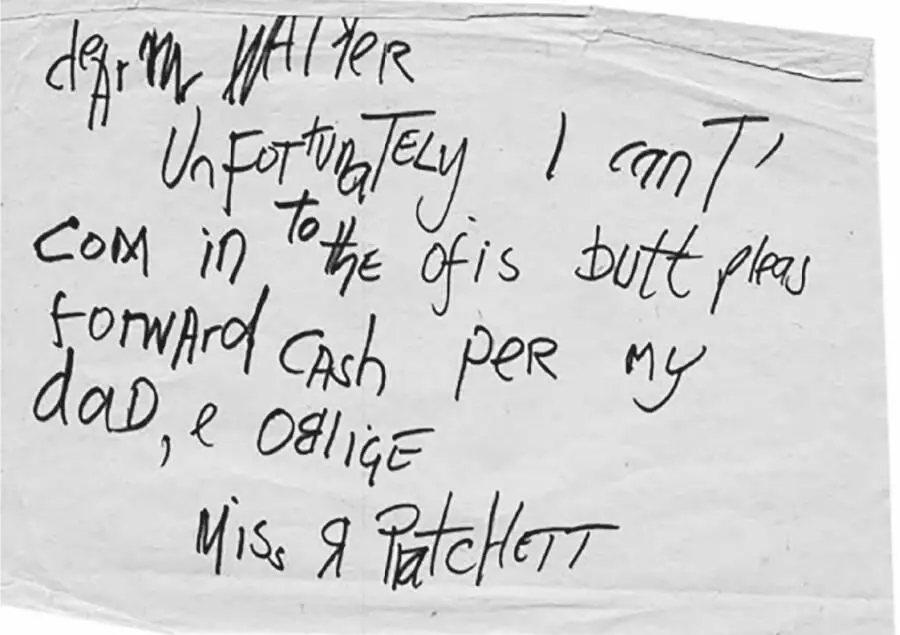 deAr Mr WAlTER
UnFortunaTELy I canT'
COM in to thE ofis butt pleas
FORWArd CAsh PER MY
daD, e OBLiGE
Miss Я PratcHETT